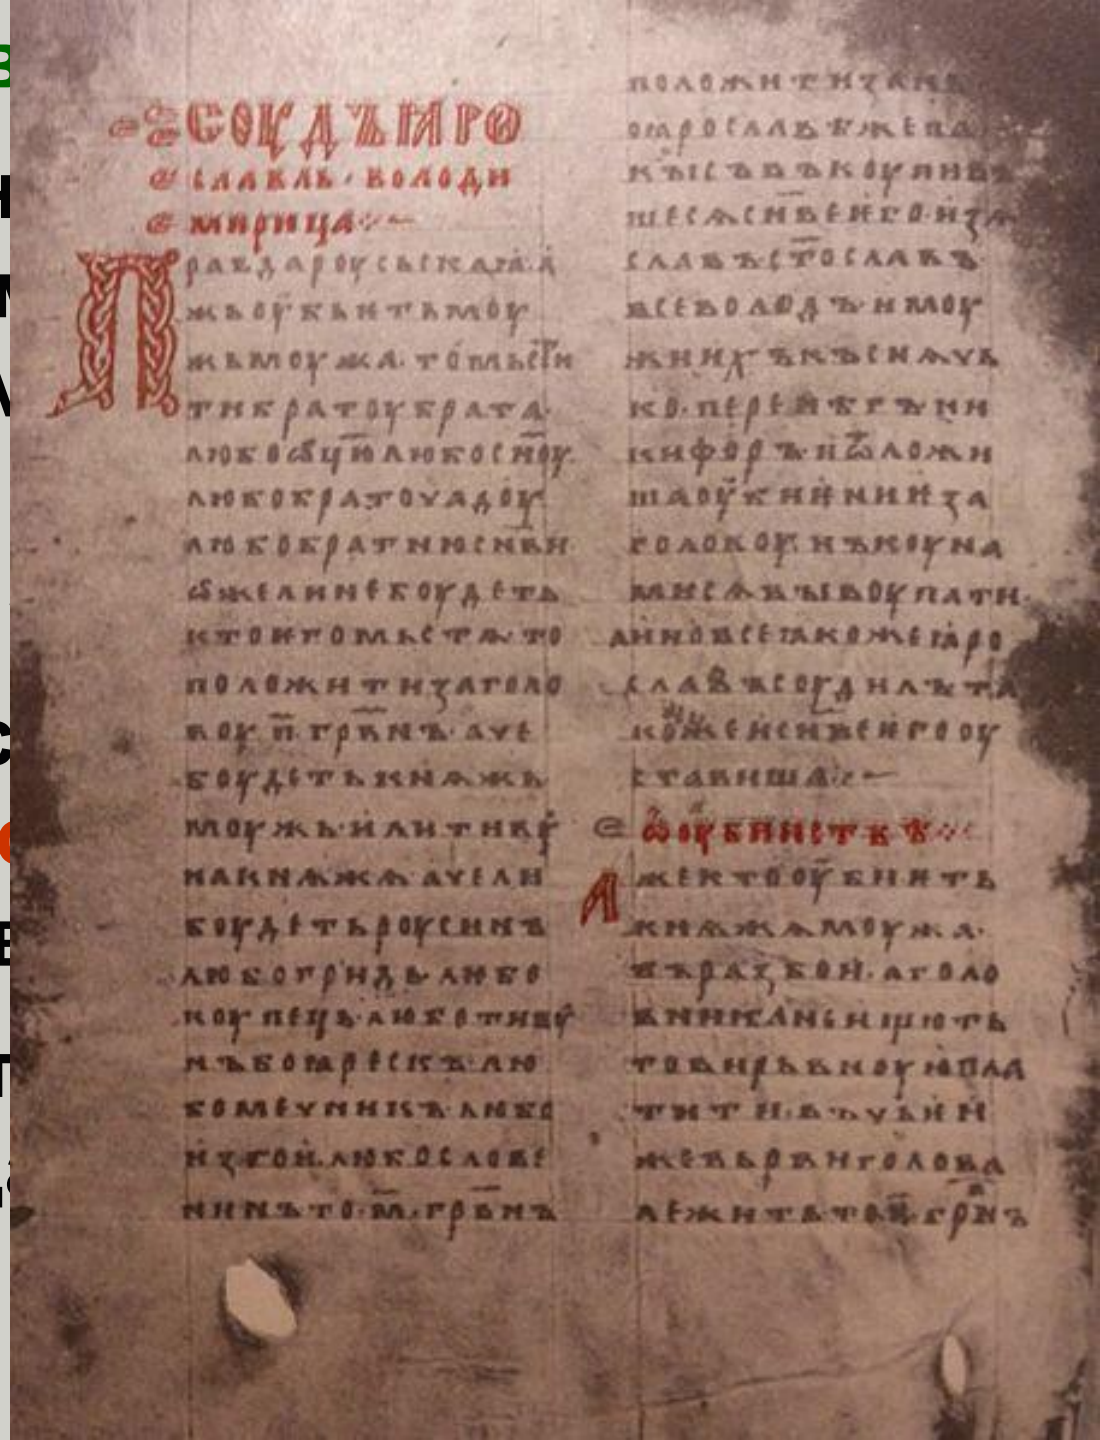 СОУДЪ ꙖРО
СЛАВЛЬ · ВОЛОДИ
МИРИЦА
ПРАВДА РОУСЬСКАꙖ · А
ЖЬ ОУБЬѤТЬ МОУ
ЖЬ МОУЖА · ТО МЬСТИ
ТИ БРАТОУ БРАТА ·
ЛЮБО ѾЦЮ ЛЮБО СН҃ОУ ·
ЛЮБО БРАТОУЧАДОУ
ЛЮБО БРАТНЮ СН҃ВИ
ѾЖЕ ЛИ НЕ БОУДЕТЬ
КТО ѤГО МЬСТѦ · ТО
ПОЛОЖИТИ ЗА ГОЛО
ВОУ · П҃ · ГРВ҃НЪ · АЧЕ
БОУДЕТЬ КНѦЖЬ
МОУЖЬ · ИЛИ ТИВУ
НА КНѦЖѦ · АЧЕ ЛИ
БОУДЕТЬ РОУСИНЪ
ЛЮБО ГРИДЬ · ЛЮБО
КОУПЕЦЬ · ЛЮБО ТИВУ
НЪ БОꙖРЕСКЪ · ЛЮ
БО МЕЧНИКЪ · ЛЮБО
ИЗГОИ · ЛЮБО СЛОВЕ
НИНЪ ТО · М҃ · ГРВ҃НЪ
ПОЛОЖИТИ ЗА НЬ
ПО ꙖРОСЛАВѢ ЖЕ ПА
КЫ СЪВЪКОУПИВЪ
ШЕСѦ СН҃ВЕ ѤГО · ИЗѦ
СЛАВЪ СТ҃ОСЛАВЪ
ВСЕВОЛОДЪ · И МОУ
ЖИ ИХЪ КЪСНѦЧЬ
КО · ПЕРЕНѢГЪ НИ
КИФОРЪ · И ѾЛОЖИ
ША ОУБИѤНИѤ ЗА
ГОЛОВОУ · НЪ КОУНА
МИ СѦ ВЫКОУПАТИ ·
А ИНО ВСЕ ꙖКОЖЕ ꙖРО
СЛАВЪ СОУДИЛЪ ТА
КОЖЕ И СН҃ВЕ ѤГО ОУ
СТАВИША
Ѿ ОУБИИСТВѢ
АЖЕ КТО ОУБИѤТЬ
КНѦЖА МОУЖА ·
ВЪ РАЗБОИ · А ГОЛО
ВНИКА НЕ ИЩЮТЬ
ТО ВИРЬВНОУЮ ПЛА
ТИТИ · ВЪ ЧЬѤИ
ЖЕ ВЬРВИ ГОЛОВА
ЛЕЖИТЬ ТО П҃ · ГРВ҃НЪ